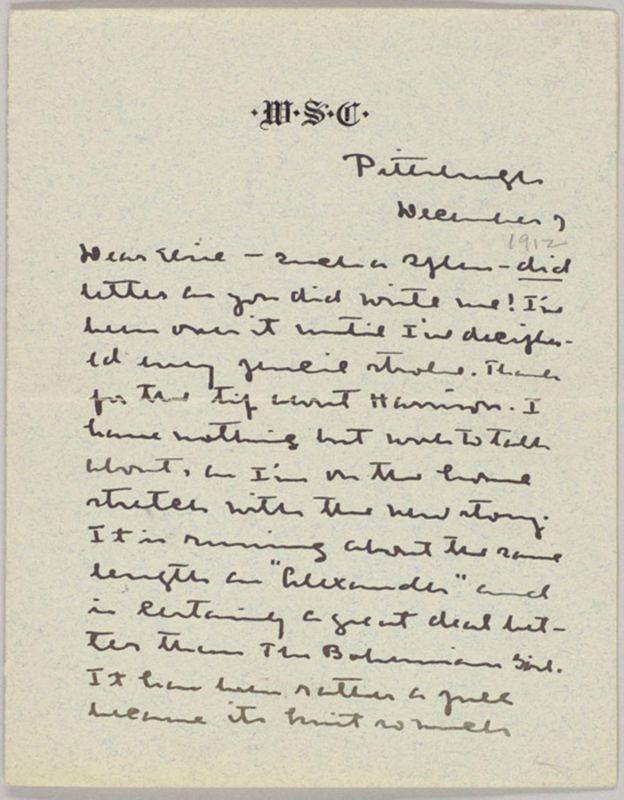 ·W·S·C·
Pittsburgh
December 7
1912
Dear Elsie – such a splen-did
letter as you did write me! I've
been over it until I've decipher-
ed every pencil stroke. Thanks
for the tip about Harrison. I
have nothing but work to talk
about, as I'm on the home
stretch with the new story.
It is running about the same
length as "Alexander" and
is certainly a great deal bet-
ter than The Bohemian Girl.
It has been rather a pull
because its built so much